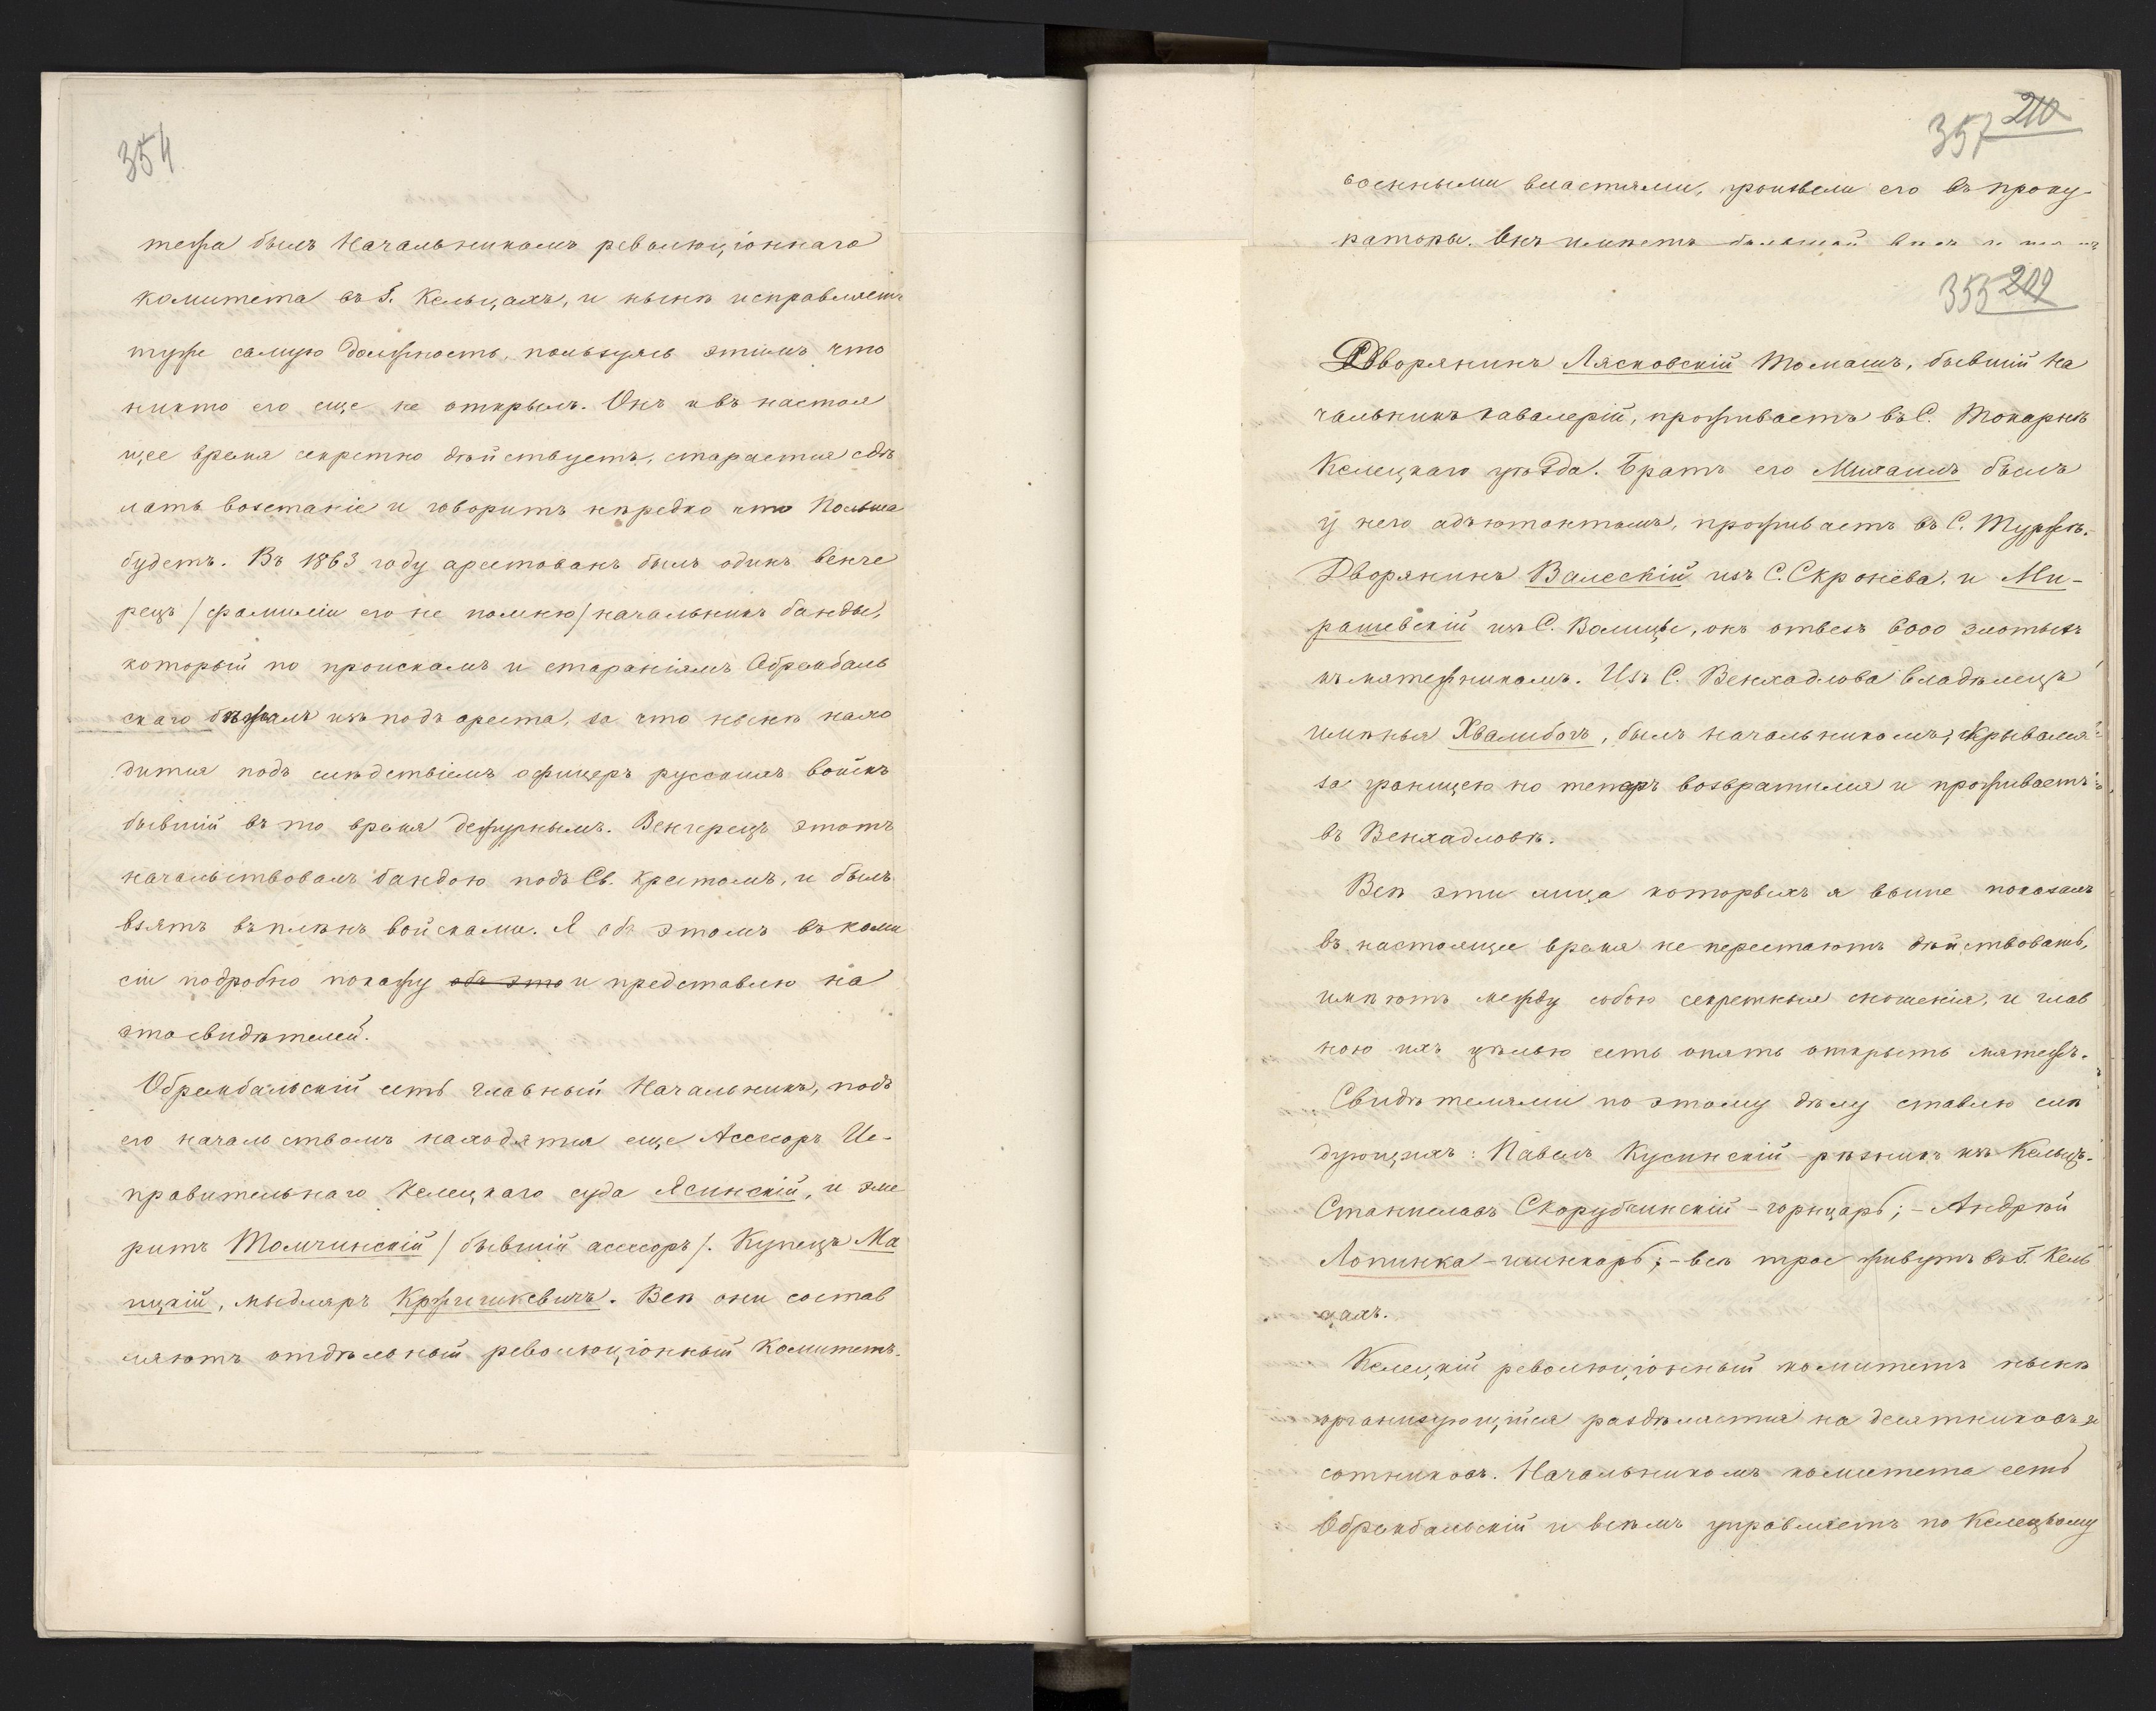 354
тежа былъ Начальникомъ революціоннаго
комитета въ Г. Кельцахъ, и нынѣ исправляетъ
туже самую должность, пользуясь этимъ что
никто его еще не открылъ. Онъ и въ настоя
щее время секретно дѣйствуетъ, старается сдѣ
лать возстаніе и говоритъ нерѣдко что Польша
будетъ. Въ 1863 году арестованъ былъ одинъ венге
рецъ /фамиліи его не помню/ начальникъ банды,
который по проискамъ и стараніямъ Обрембаль
скаго бѣжалъ изъ подъ ареста, за что нынѣ нахо
дится подъ слѣдствіемъ офицеръ русскихъ войскъ
бывшій въ то время дежурнымъ. Венгерецъ этотъ
начальствовалъ бандою подъ Св. Крестомъ, и былъ
взятъ въ плѣнъ войсками. Я объ этомъ въ коми
сіи подробно покажу объ это и представлю на
это свидѣтелей.
Обрембальскій есть главный Начальникъ, подъ
его начальствомъ находятся еще Ассесоръ Ис-
правительнаго Келецкаго суда Ясинскій, и эме
ритъ Томчинскій /бывшій асесоръ/. Купецъ Ма
пцкій, мыдляръ Кржешкевичъ. Всѣ они состав
ляютъ отдѣльный революціонный Комитетъ.
357 210
военными властями, произвели его въ проку-
раторы. Онъ имѣетъ большой
355 209
Дворянинъ Лясковскій Томашъ, бывшій На
чальникъ кавалерій, проживаетъ въ С. Токарнѣ
Келецкаго уѣзда. Братъ его Михаилъ былъ
у него адъютантомъ, проживаетъ въ С. Туржѣ.
Дворянинъ Валескій изъ С. Скронёва, и Ми-
рашевскій изъ С. Волицы, онъ отвезъ 6000 злотыхъ
къ мятежникамъ. Изъ С. Венхадлова владѣлецъ
имѣнья Хвалибогъ, былъ начальникомъ, скрывался
за границею но теперь возвратился и проживаетъ
въ Венхадловѣ.
Всѣ эти лица которыхъ я выше показалъ
въ настоящее время не перестаютъ дѣйствовать,
имѣютъ между собою секретныя сношенія, и глав
ною ихъ цѣлью есть опять открыть мятежъ.
Свидѣтелями по этому дѣлу ставлю слѣ
дующихъ: Павелъ Кусинскій - рѣзникъ изъ Кельцъ.
Станиславъ Скорубчинскій - горнцарь; - Андрѣй
Лопинка - шинкарь; - всѣ трое живутъ въ Г. Кель
цахъ.
Келецкій революціонный комитетъ нынѣ
организующійся раздѣляется на десятниковъ и
сотниковъ. Начальникомъ комитета есть
Обрембальскій и всѣмъ управляетъ по Келецкому